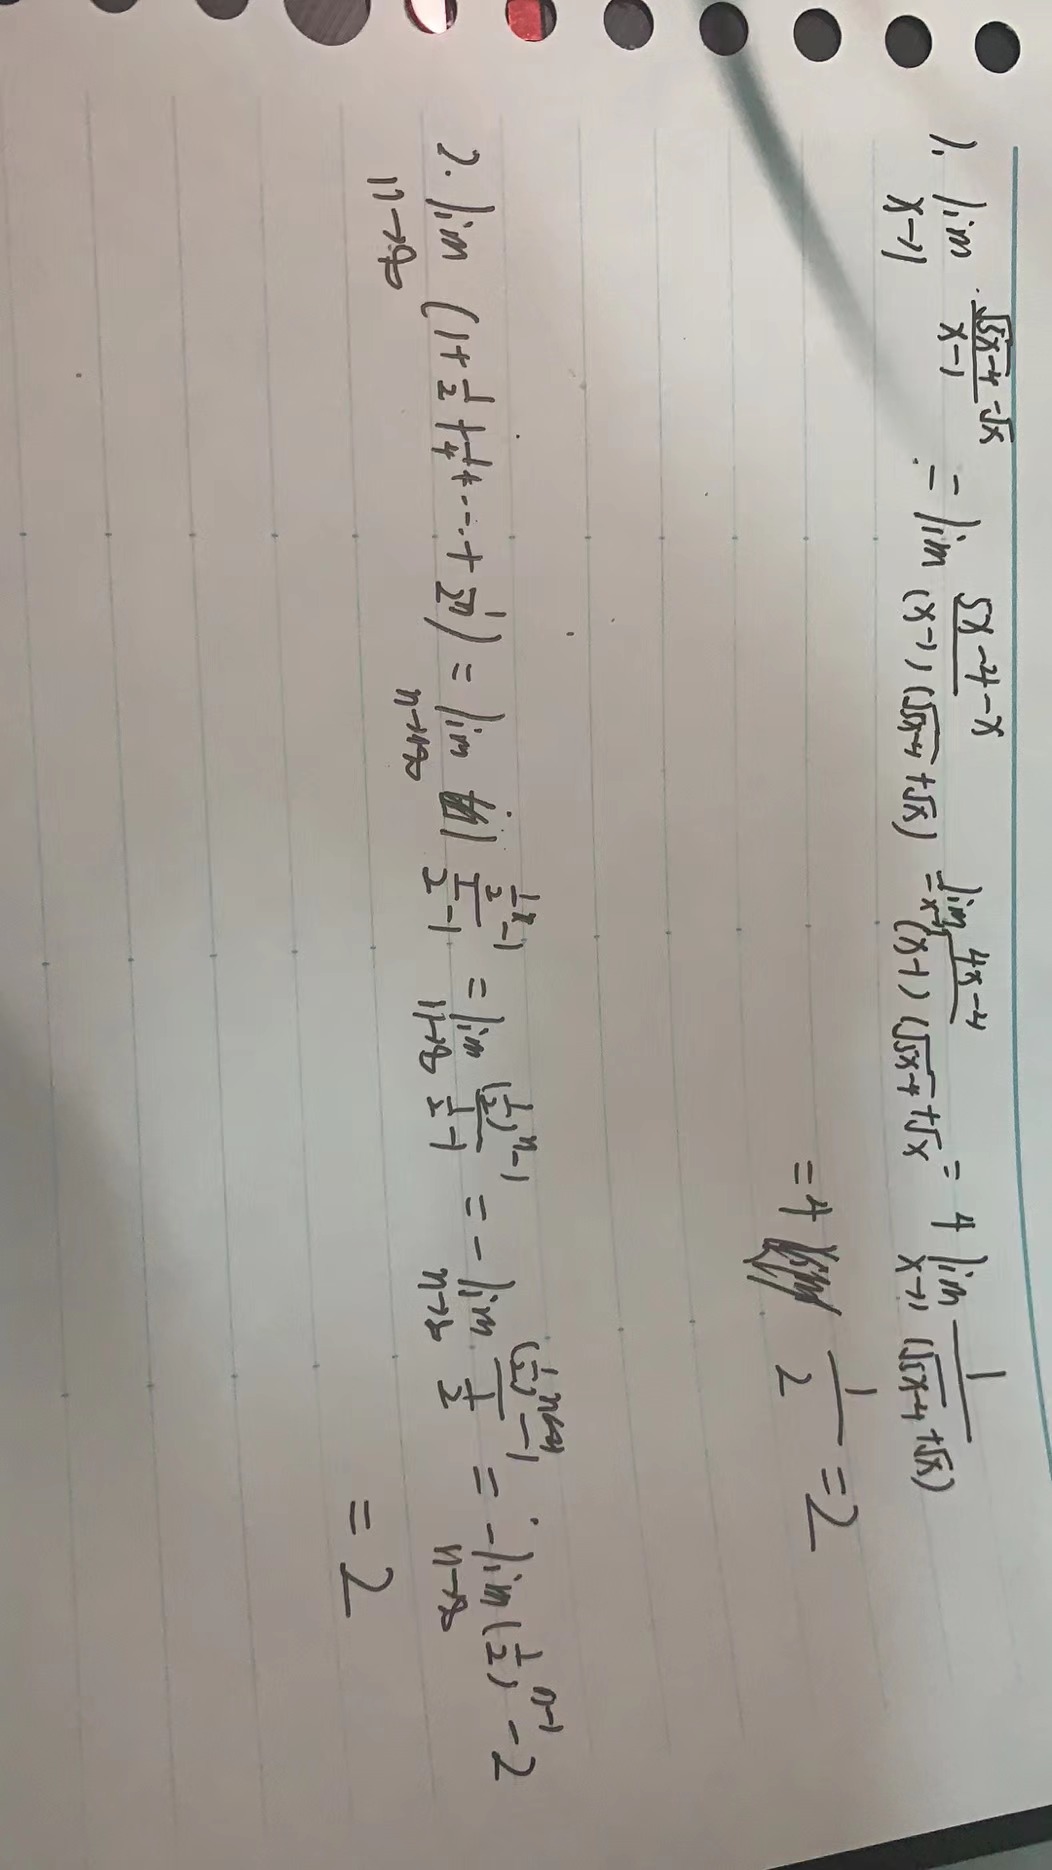 1. lim x→1 (√(5x-4) - √x)/(x-1) = lim (5x-4-x)/((x-1)(√(5x-4)+√x)) = lim x→1 (4x-4)/((x-1)(√(5x-4)+√x = 4 lim x→1 1/(√(5x-4)+√x)
= 4 1/2 = 2
2. lim n→∞ (1+1/2+1/4+...+1/2ⁿ) = lim n→+∞ 1 (1/2ⁿ-1)/(1/2-1) = lim n→∞ ((1/2)ⁿ-1)/(1/2-1) = - lim n→∞ ((1/2)ⁿ-1)/(1/2) = -lim n→∞ (1/2)ⁿ⁻¹ - 2
= 2